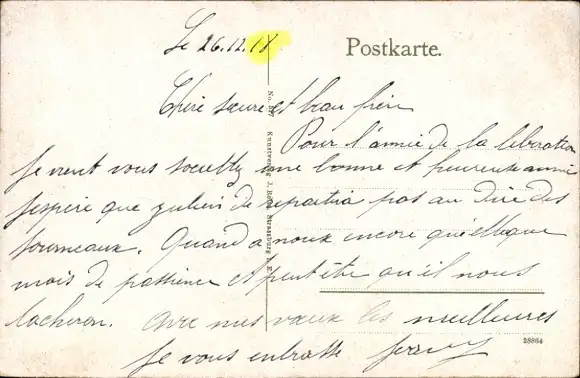 Le 26.12.18
Postkarte.
Chère soeure et beau frère
Pour l'année de la liberation
Je vient vous souettez une bonne et heureuse anné
J'espère que julien de repartira pas au Dire des
journeaux. Quand a noux encore quelleque
mois de passience et peut être qu'il nous
lacheron. Avec mes vœux les meilleures
Je vous enbrasse
No. Kunstverlag J. Strassburg i. E.
28864